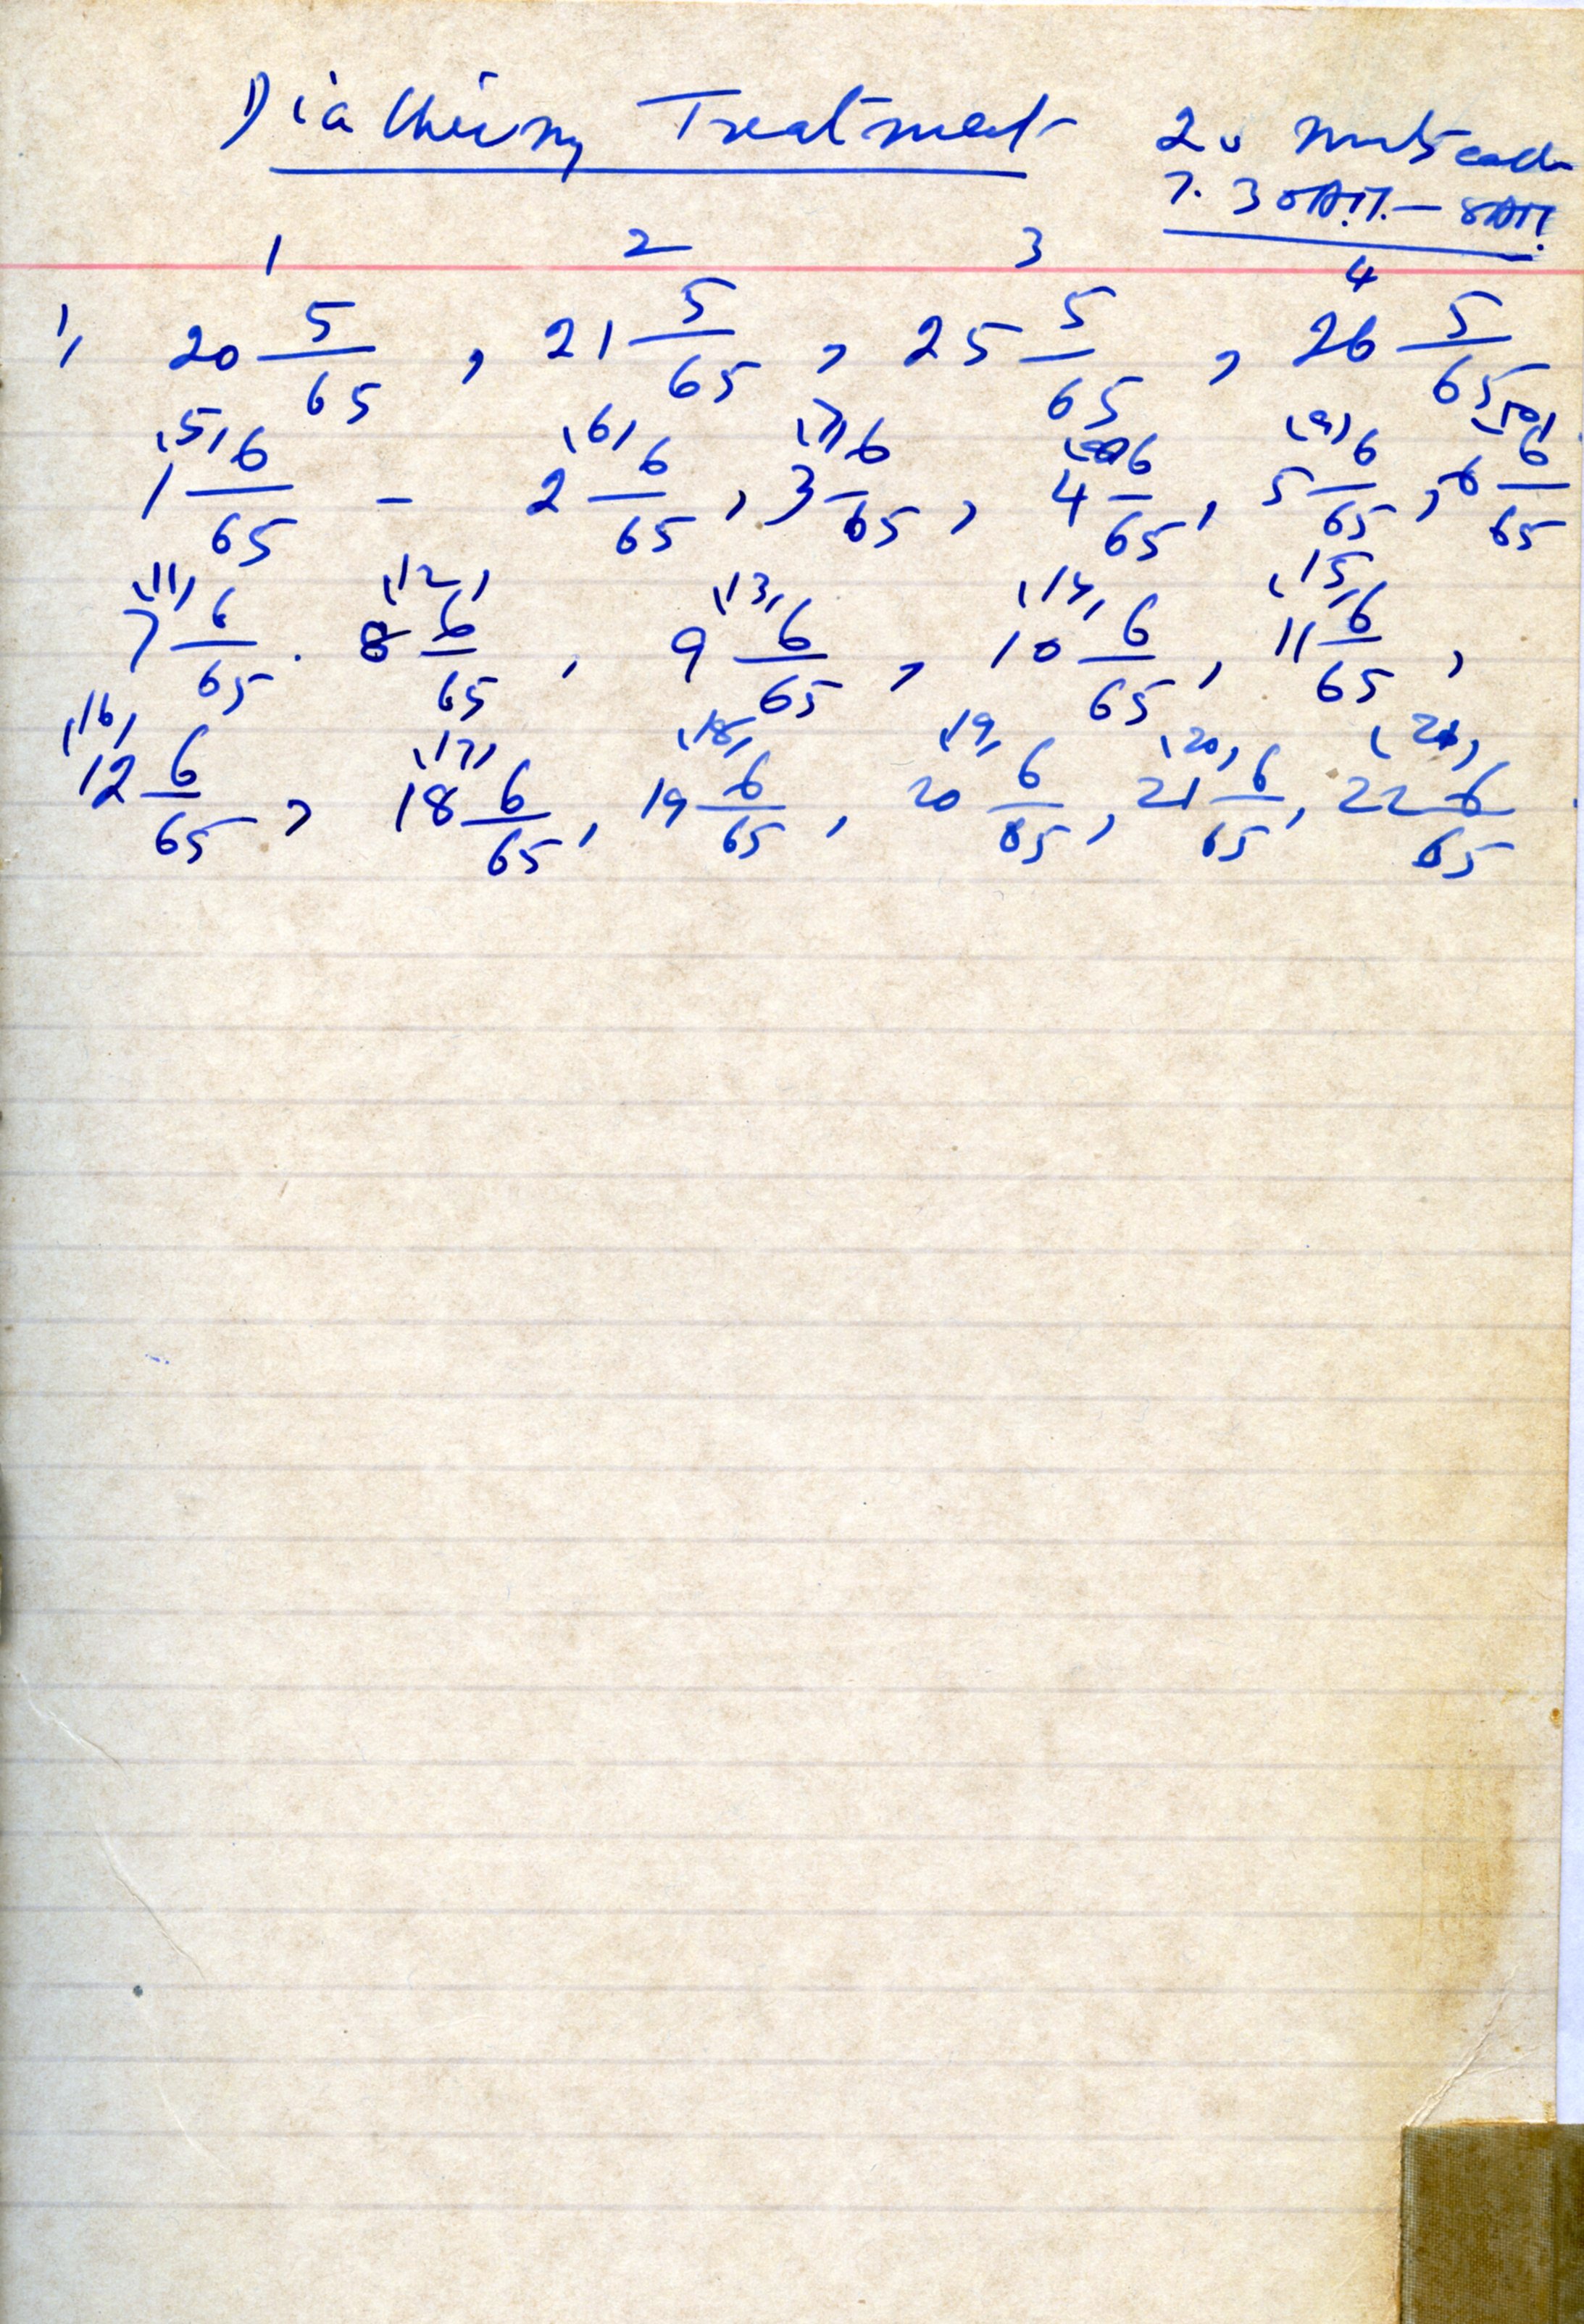 Diathermy Treatment 20 mnts each
7.30 A.M. – 8 AM
1 2 3 4
1, 20 5/65, 21 5/65, 25 5/65, 26 5/65
(5) (6) (7) (8) (9) (10)
1 6/65 – 2 6/65, 3 6/65, 4 6/65, 5 6/65, 6 6/65
(11) (12) (13) (14) (15)
7 6/65. 8 6/65, 9 6/65, 10 6/65, 11 6/65,
(16) (17) (18) (19) (20) (21)
12 6/65, 18 6/65, 19 6/65, 20 6/65, 21 6/65, 22 6/65.